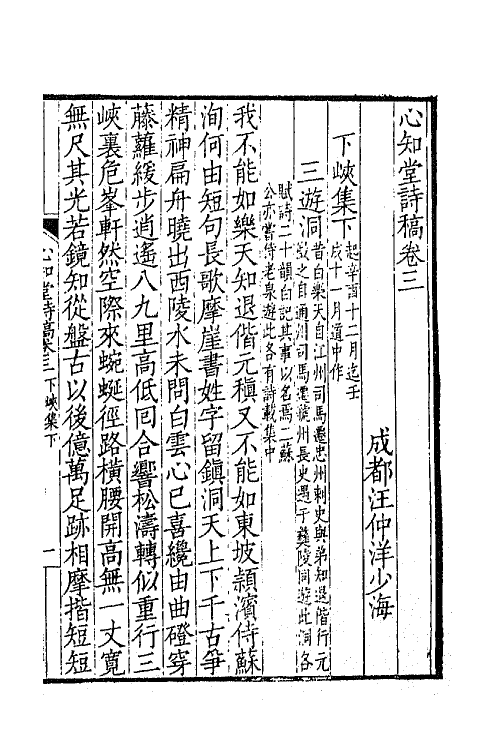 心知堂詩稿卷三
成都汪仲洋少海
下峽集下
起辛酉十二月迄壬
戌十一月道中作
三遊洞
昔白樂天自江州司馬遷忠州刺史與弟知退偕行元
微之自通州司馬遷虢州長史遇于彝陵同遊此洞各
賦詩二十韻白記其事以名焉二蘇
公亦嘗侍老泉遊此各有詩載集中
我不能如樂天知退偕元稹又不能如東坡潁濱侍蘇
洵何由短句長歌摩崖書姓字留鎮洞天上下千古爭
精神扁舟曉出西陵水未問白雲心已喜纔由曲磴穿
藤蘿緩步逍遙八九里高低回合響松濤轉似重行三
峽裏危峯軒然空際來蜿蜒徑路橫腰開高無一丈寬
無尺其光若鏡知從盤古以後億萬足跡相摩揩短短
心知堂詩稿卷三 下峽集下
一